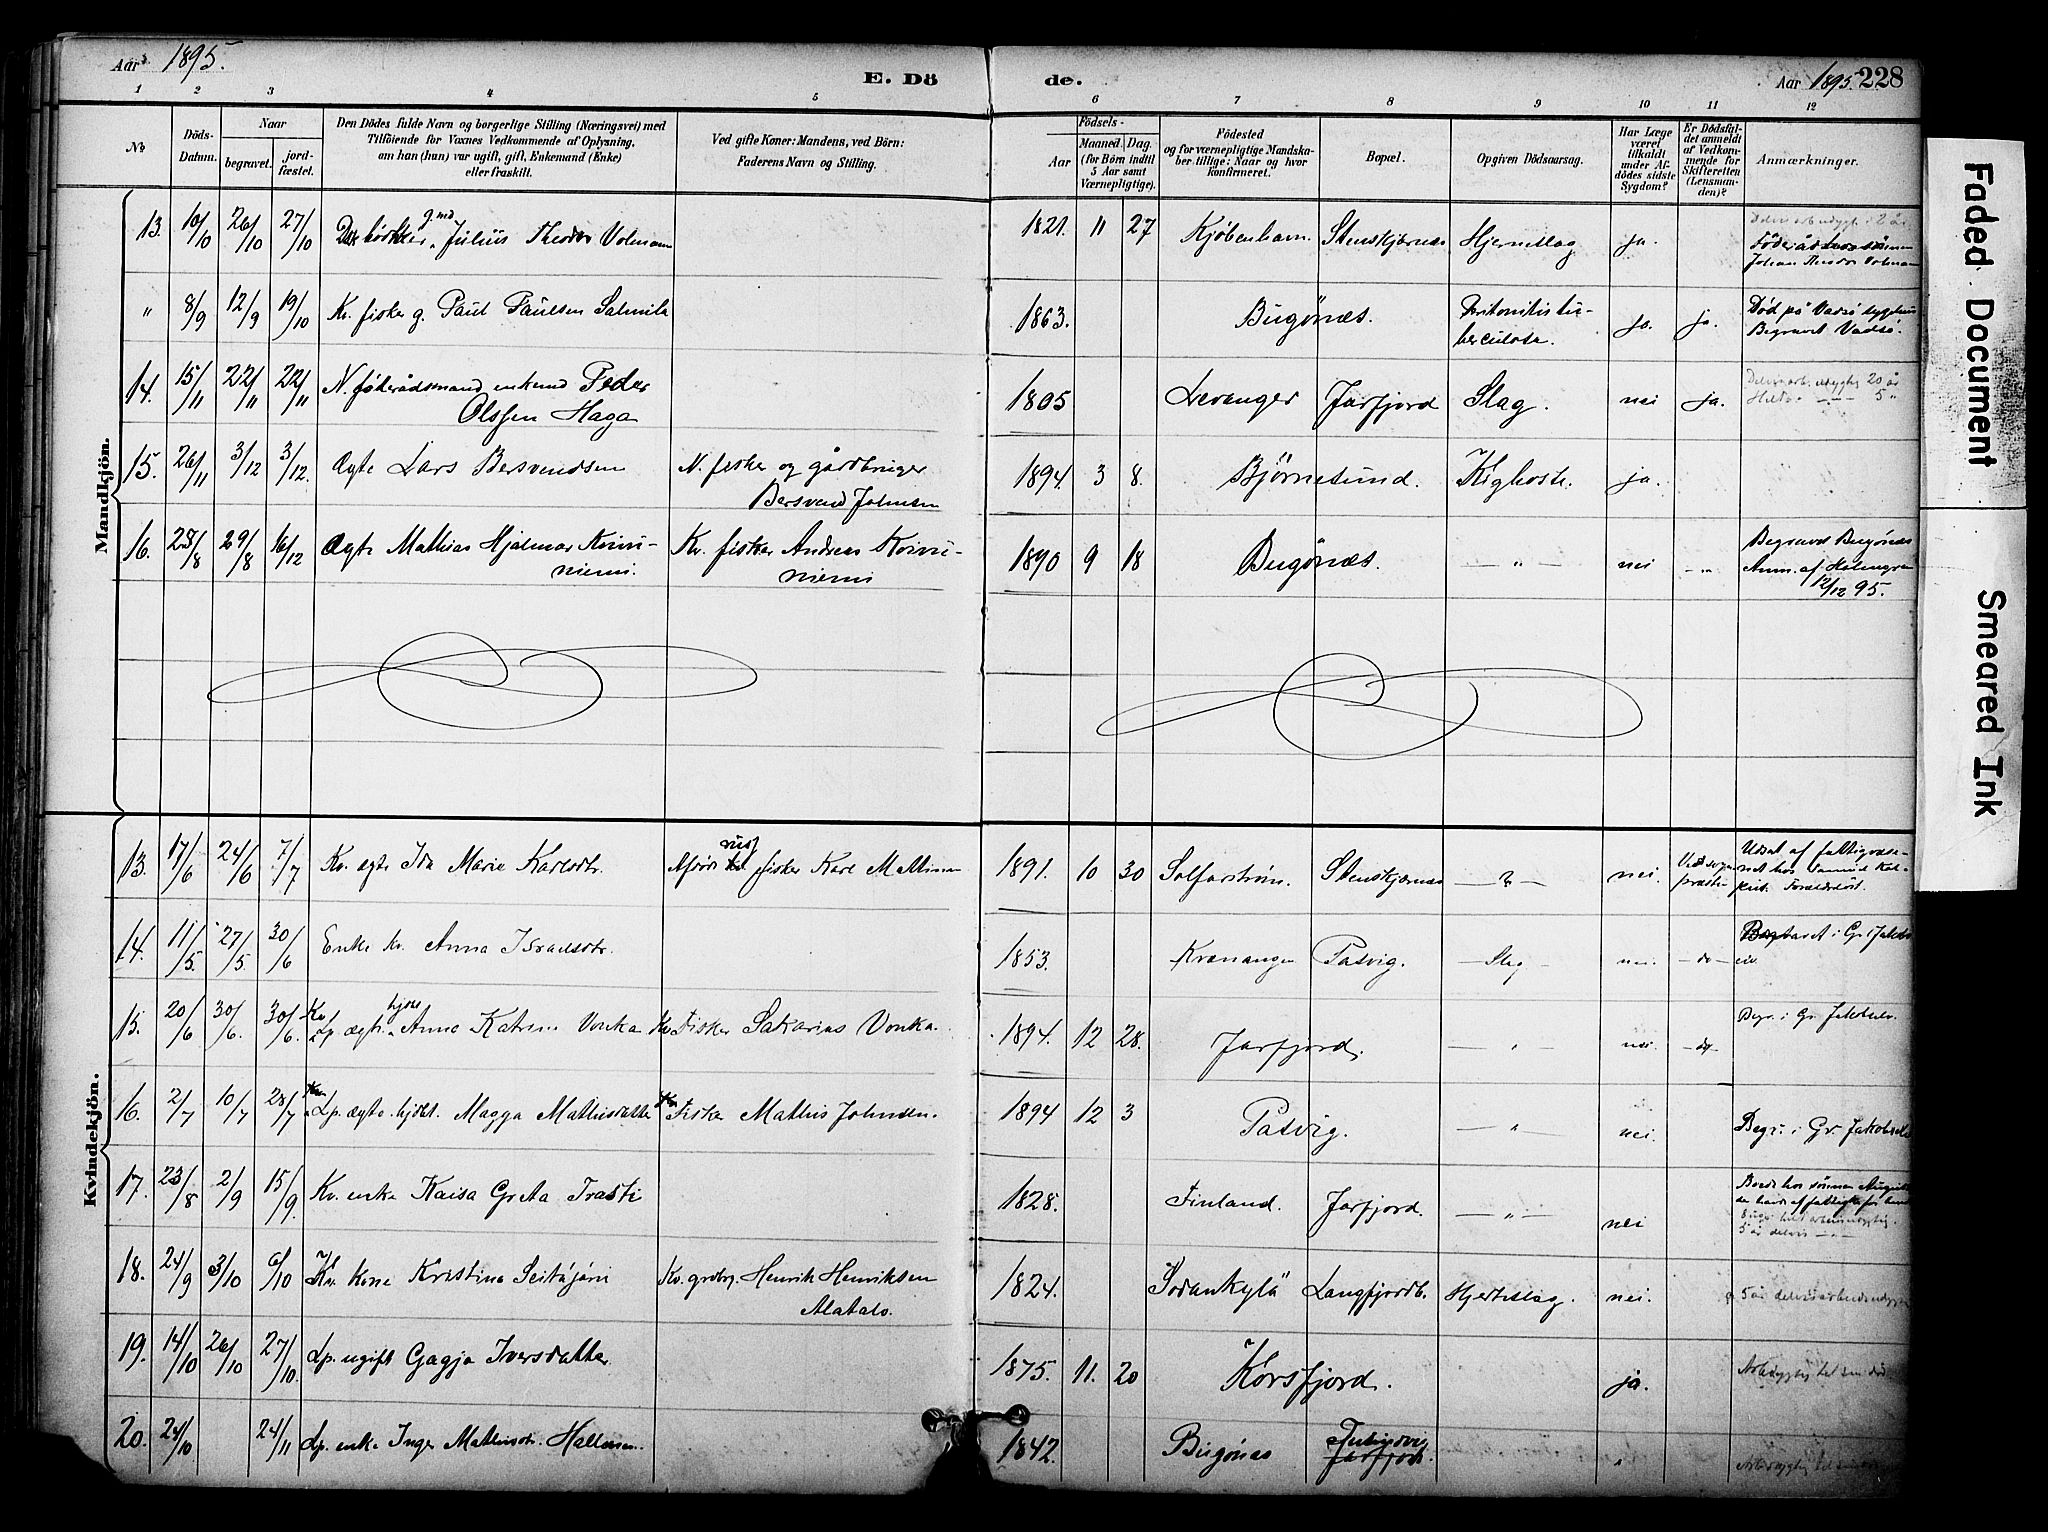 Aar 1895.
E. Dö
de.
Aar 1895. 228
1 2 3 4 5 6 7 8 9 10 11 12
No
Döds-
Datum.
Naar
begravet.
jord-
fæstet.
Den Dödes fulde Navn og borgerlige Stilling (Næringsvei) med
Tilföiende for Voxnes Vedkommende af Oplysning,
om han (hun) var ugift, gift, Enkemand (Enke)
eller fraskilt.
Ved gifte Koner: Mandens, ved Börn:
Faderens Navn og Stilling.
Födsels-
Aar
Maaned. Dag.
(for Börn indtil
5 Aar samt
Værnepligtige).
Födested
og for værnepligtige Mandska-
ber tillige: Naar og hvor
konfirmeret.
Bopæl.
Opgiven Dödsaarsag.
Har Læge
været
tilkaldt
under Af-
dödes sidste
Sygdom?
Er Dödsfal-
det anmeldt
af Vedkom-
mende for
Skifteretten
(Lensman-
den)?
Anmærkninger.
Mandkjön.
13. 10/10 26/10 27/10 g. md Julius Theodor Volmann 1821. 11 27 Kjöbenhavn. Stenskjernæs Hjerneslag ja.
Johan Theodor Volmann
" 8/9 12/9 19/10 Kv. fisker g. Paul Paulsen Salmila 1863. Bugönæs. Peritonitis tu-
berculosa. ja. ja. Död på Vadsö sygehus
Begravet Vadsö.
14. 15/11 22/11 22/11 N. föderådsmand, enkemd Peder
Olssen Haga 1805 Levanger Jarfjord Slag. nei ja. 20 år
5 "
15. 26/11 3/12 3/12. Ægte Lars Bersvendsen N. fisker og gårdbruger
Bersvend Johnsen 1894. 3 8. Björnesund. Kighoste. ja.
16. 25/8 29/8 16/12 Ægte Mathias Hjalmar Koivu-
niemi. Kv. fisker Andreas Koivu-
niemi 1890 9 18 Bugönæs. — " — nei - " - Begravet Bugönæs
Anm. af Holmgren
12/12 95.
Kvindekjön.
13. 17/6 24/6 7/7 Kv. ægte Ida Marie Karlsdtr. fisker Karl Mattinen 1891. 10 30 Solfarström. Stenskjernæs — ? — nei. Udsat af fattigvæse-
net hos
Forældrelöst.
14. 11/5. 27/5. 30/6 Enke kv. Anna Israelsdtr. 1853. Kvænangen Pasvig. — Slag — nei. — do — i Gr. Jakobs-
elv.
15. 20/6 30/6. 30/6. Kv.
Lp. ægte hjdöbt Anna Katrine Vonka Kv. Fisker Sakarias Vonka. 1894. 12 28. Jarfjord. — " — nei. — do — Begr. i Gr. Jakobselv.
16. 2/7 10/7 28/7 Lp. ægte hjdöbt. Magga Mathisdatter Fisker Mathis Johnsen. 1894 12 3 Pasvig. — " — nei. Begr. i Gr. Jakobselv
17. 23/8 2/9 15/9. Kv. enke Kaisa Greta Trasti 1828. Finland. Jarfjord. — " — nei Boede hos sönnen
5 år delvis — " —
18. 24/9 3/10 6/10 Kv. kone Kristina Seitajärvi Kv. grdbrg. Henrik Henriksen
Alatalo. 1824. Sodankylä Langfjordb. Hjerteslag. nei. 5 år delvis arbeidsudygtig
19. 14/10 26/10 27/10. Lp. ugift Gagja Iversdatter. 1875. 11. 20 Korsfjord. ja.
20. 24/10 24/11 Lp. enke Inger Mathisdtr. Hallonen. 1842. Bugönæs Jarfjord. "
Faded Document
Smeared Ink